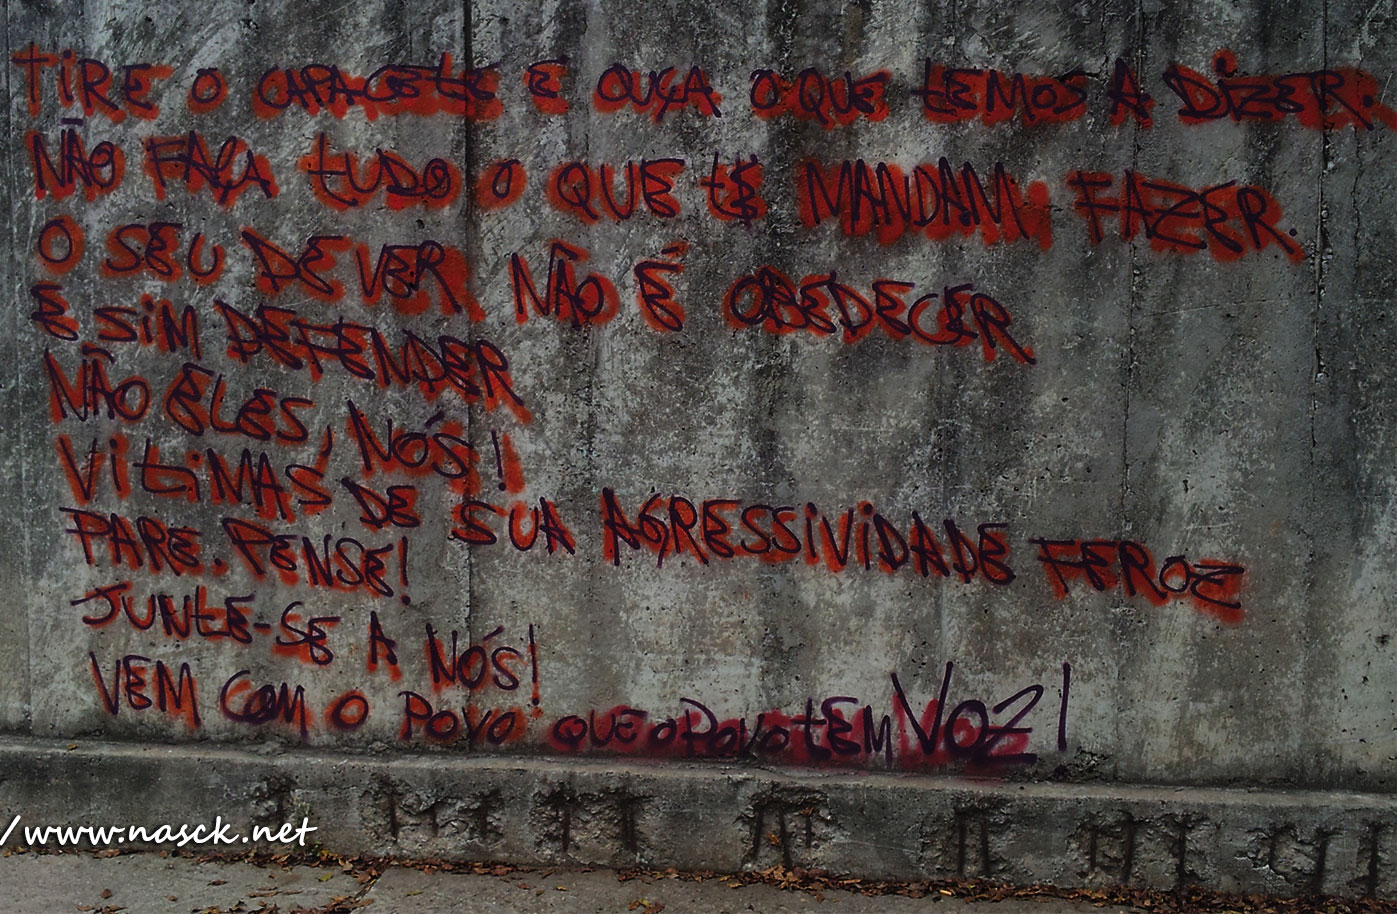 TIRE O CAPACETE E OUÇA O QUE TEMOS A DIZER.
NÃO FAÇA TUDO O QUE TE MANDAM FAZER.
O SEU DEVER NÃO É OBEDECER
E SIM DEFENDER
NÃO ELES, NÓS!
VITIMAS DE SUA AGRESSIVIDADE FEROZ
PARE. PENSE!
JUNTE-SE A NÓS!
VEM COM O POVO QUE O POVO TEM VOZ!
/www.nasck.net